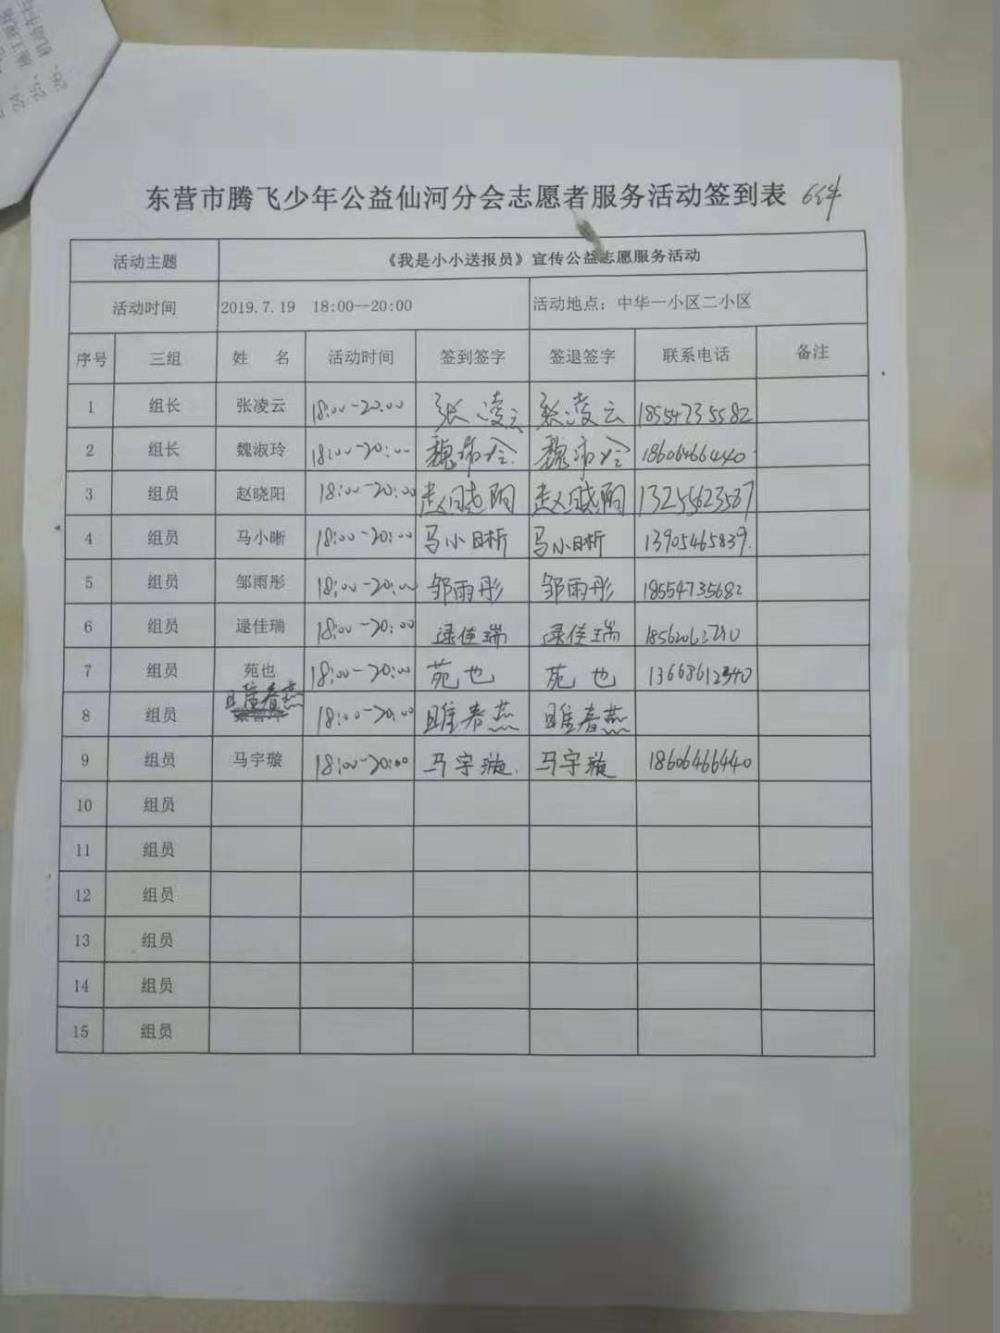 东营市腾飞少年公益仙河分会志愿者服务活动签到表
活动主题 《我是小小送报员》宣传公益志愿服务活动
活动时间 2019.7.19 18:00--20:00 活动地点：中华一小区二小区
序号 三组 姓 名 活动时间 签到签字 签退签字 联系电话 备注
1 组长 张凌云 18:00-20:00 张凌云 张凌云 18554735582
2 组长 魏淑玲 18:00-20:00 魏淑玲 魏淑玲 18606466440
3 组员 赵晓阳 18:00-20:00 赵晓阳 赵晓阳 13255623587
4 组员 马小晰 18:00-20:00 马小晰 马小晰 13905465839
5 组员 邹雨彤 18:00-20:00 邹雨彤 邹雨彤 18554735682
6 组员 逯佳瑞 18:00-20:00 逯佳瑞 逯佳瑞
7 组员 苑也 18:00-20:00 苑也 苑也 13668612340
8 组员 睢春燕 18:00-20:00 睢春燕 睢春燕
9 组员 马宇璇 18:00-20:00 马宇璇 马宇璇 18606466440
10 组员
11 组员
12 组员
13 组员
14 组员
15 组员